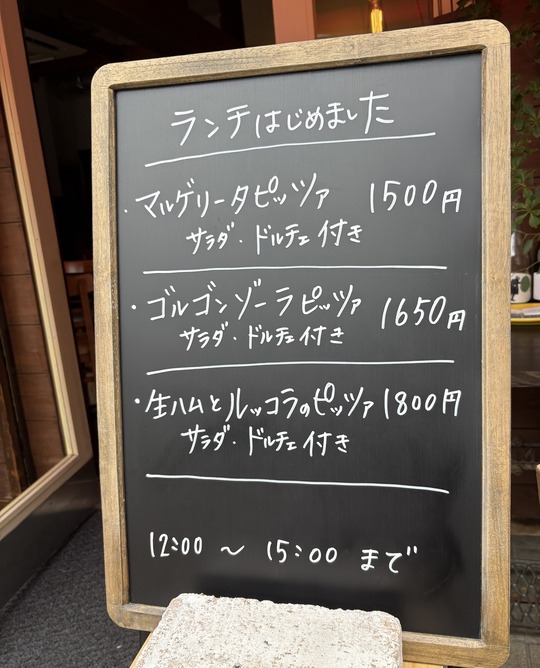 ランチはじめました
・マルゲリータピッツァ 1500円
サラダ・ドルチェ付き
・ゴルゴンゾーラピッツァ 1650円
サラダ・ドルチェ付き
・生ハムとルッコラのピッツァ 1800円
サラダ・ドルチェ付き
12:00 〜 15:00 まで